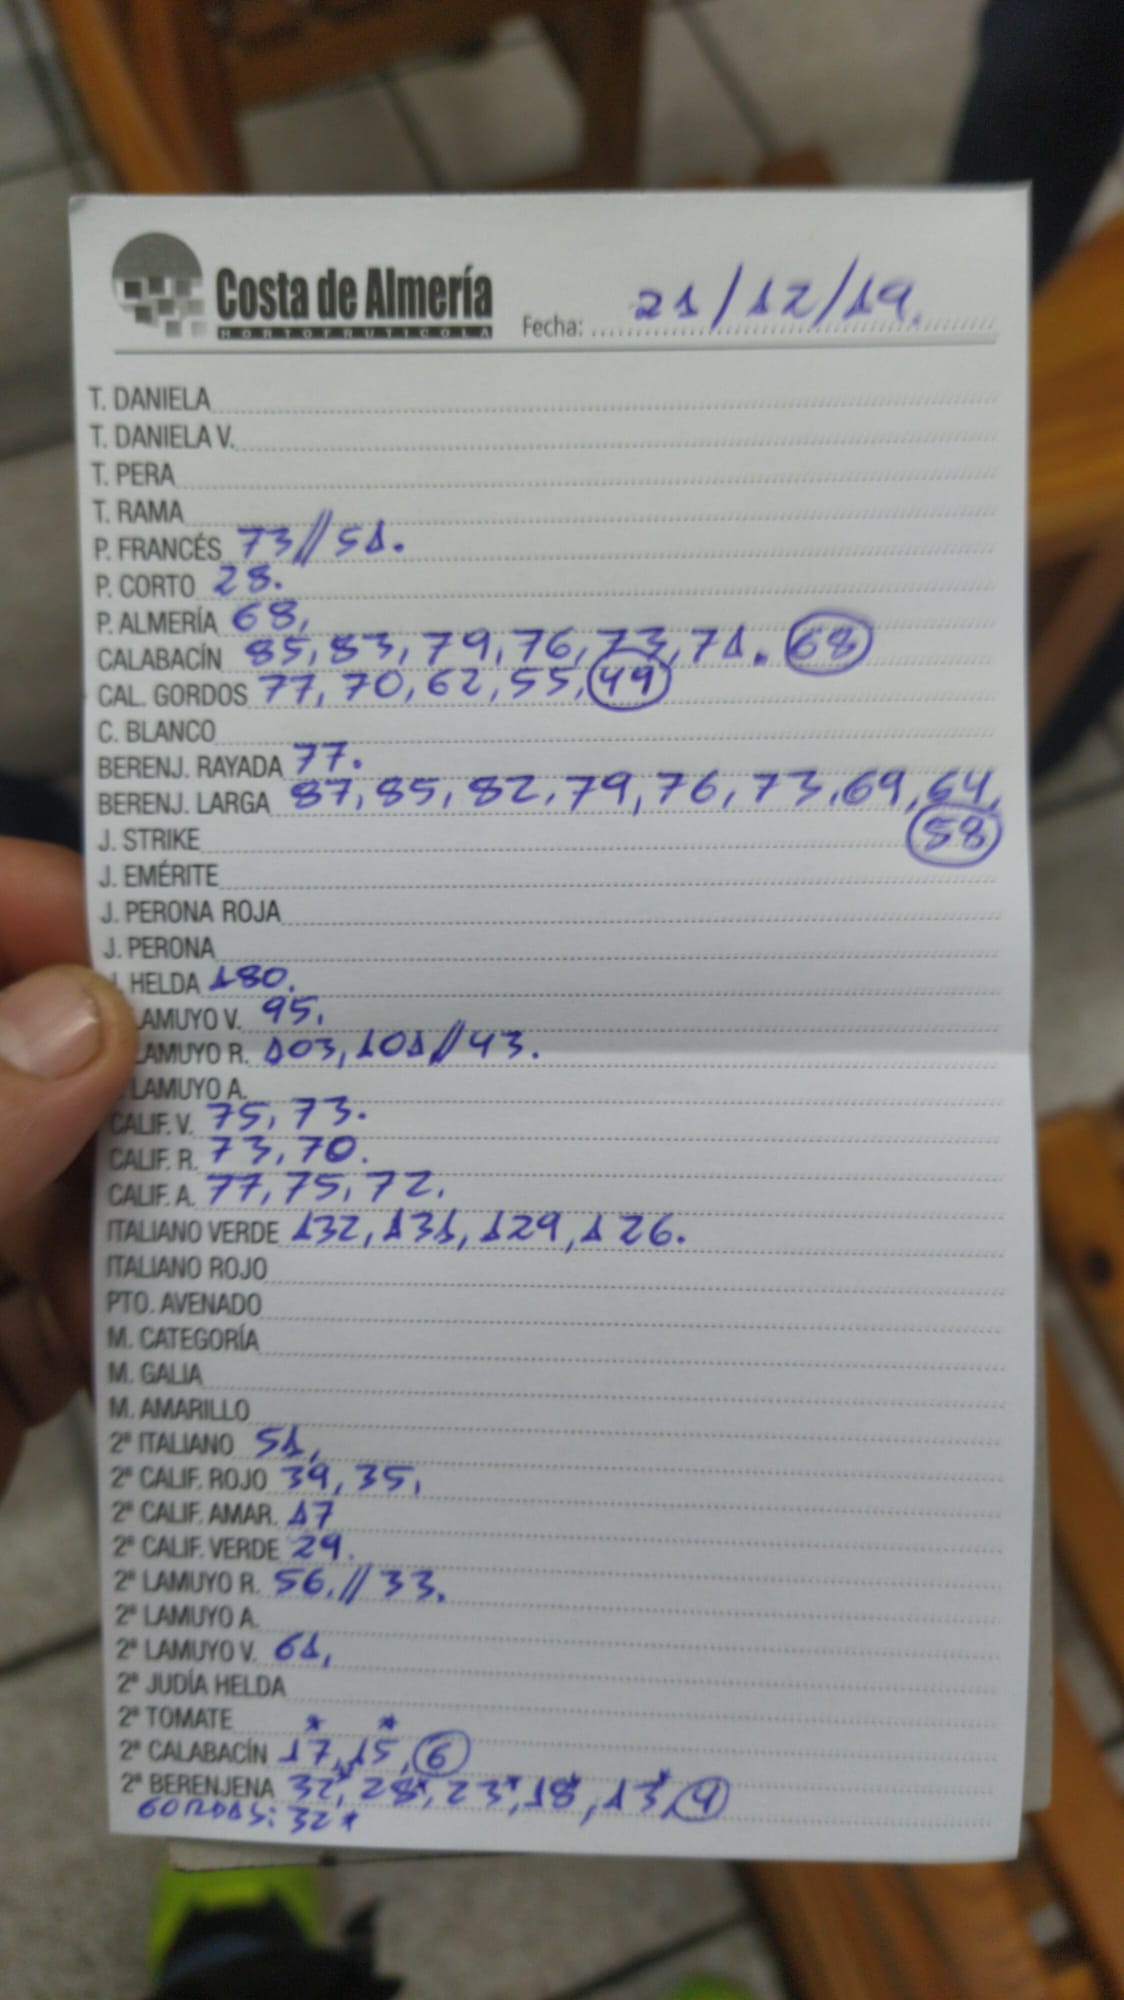 Costa de Almería
HORTOFRUTICOLA
Fecha: 21/12/19.
T. DANIELA
T. DANIELA V.
T. PERA
T. RAMA
P. FRANCÉS 73//51.
P. CORTO 28.
P. ALMERÍA 68,
CALABACÍN 85, 83, 79, 76, 73, 71. 68
CAL. GORDOS 77, 70, 62, 55, 49
C. BLANCO
BERENJ. RAYADA 77.
BERENJ. LARGA 87, 85, 82, 79, 76, 73, 69, 64,
58
J. STRIKE
J. EMÉRITE
J. PERONA ROJA
J. PERONA
J. HELDA 180.
LAMUYO V. 95,
LAMUYO R. 103, 101//43.
LAMUYO A.
CALIF. V. 75, 73.
CALIF. R. 73, 70.
CALIF. A. 77, 75, 72.
ITALIANO VERDE 132, 131, 129, 126.
ITALIANO ROJO
PTO. AVENADO
M. CATEGORÍA
M. GALIA
M. AMARILLO
2ª ITALIANO 51,
2ª CALIF. ROJO 39, 35,
2ª CALIF. AMAR. 17
2ª CALIF. VERDE 29.
2ª LAMUYO R. 56.//33.
2ª LAMUYO A.
2ª LAMUYO V. 61,
2ª JUDÍA HELDA
2ª TOMATE
2ª CALABACÍN 17*, 15*, 6
2ª BERENJENA 32*, 28*, 23*, 18*, 13*, 9
GORDAS: 32*